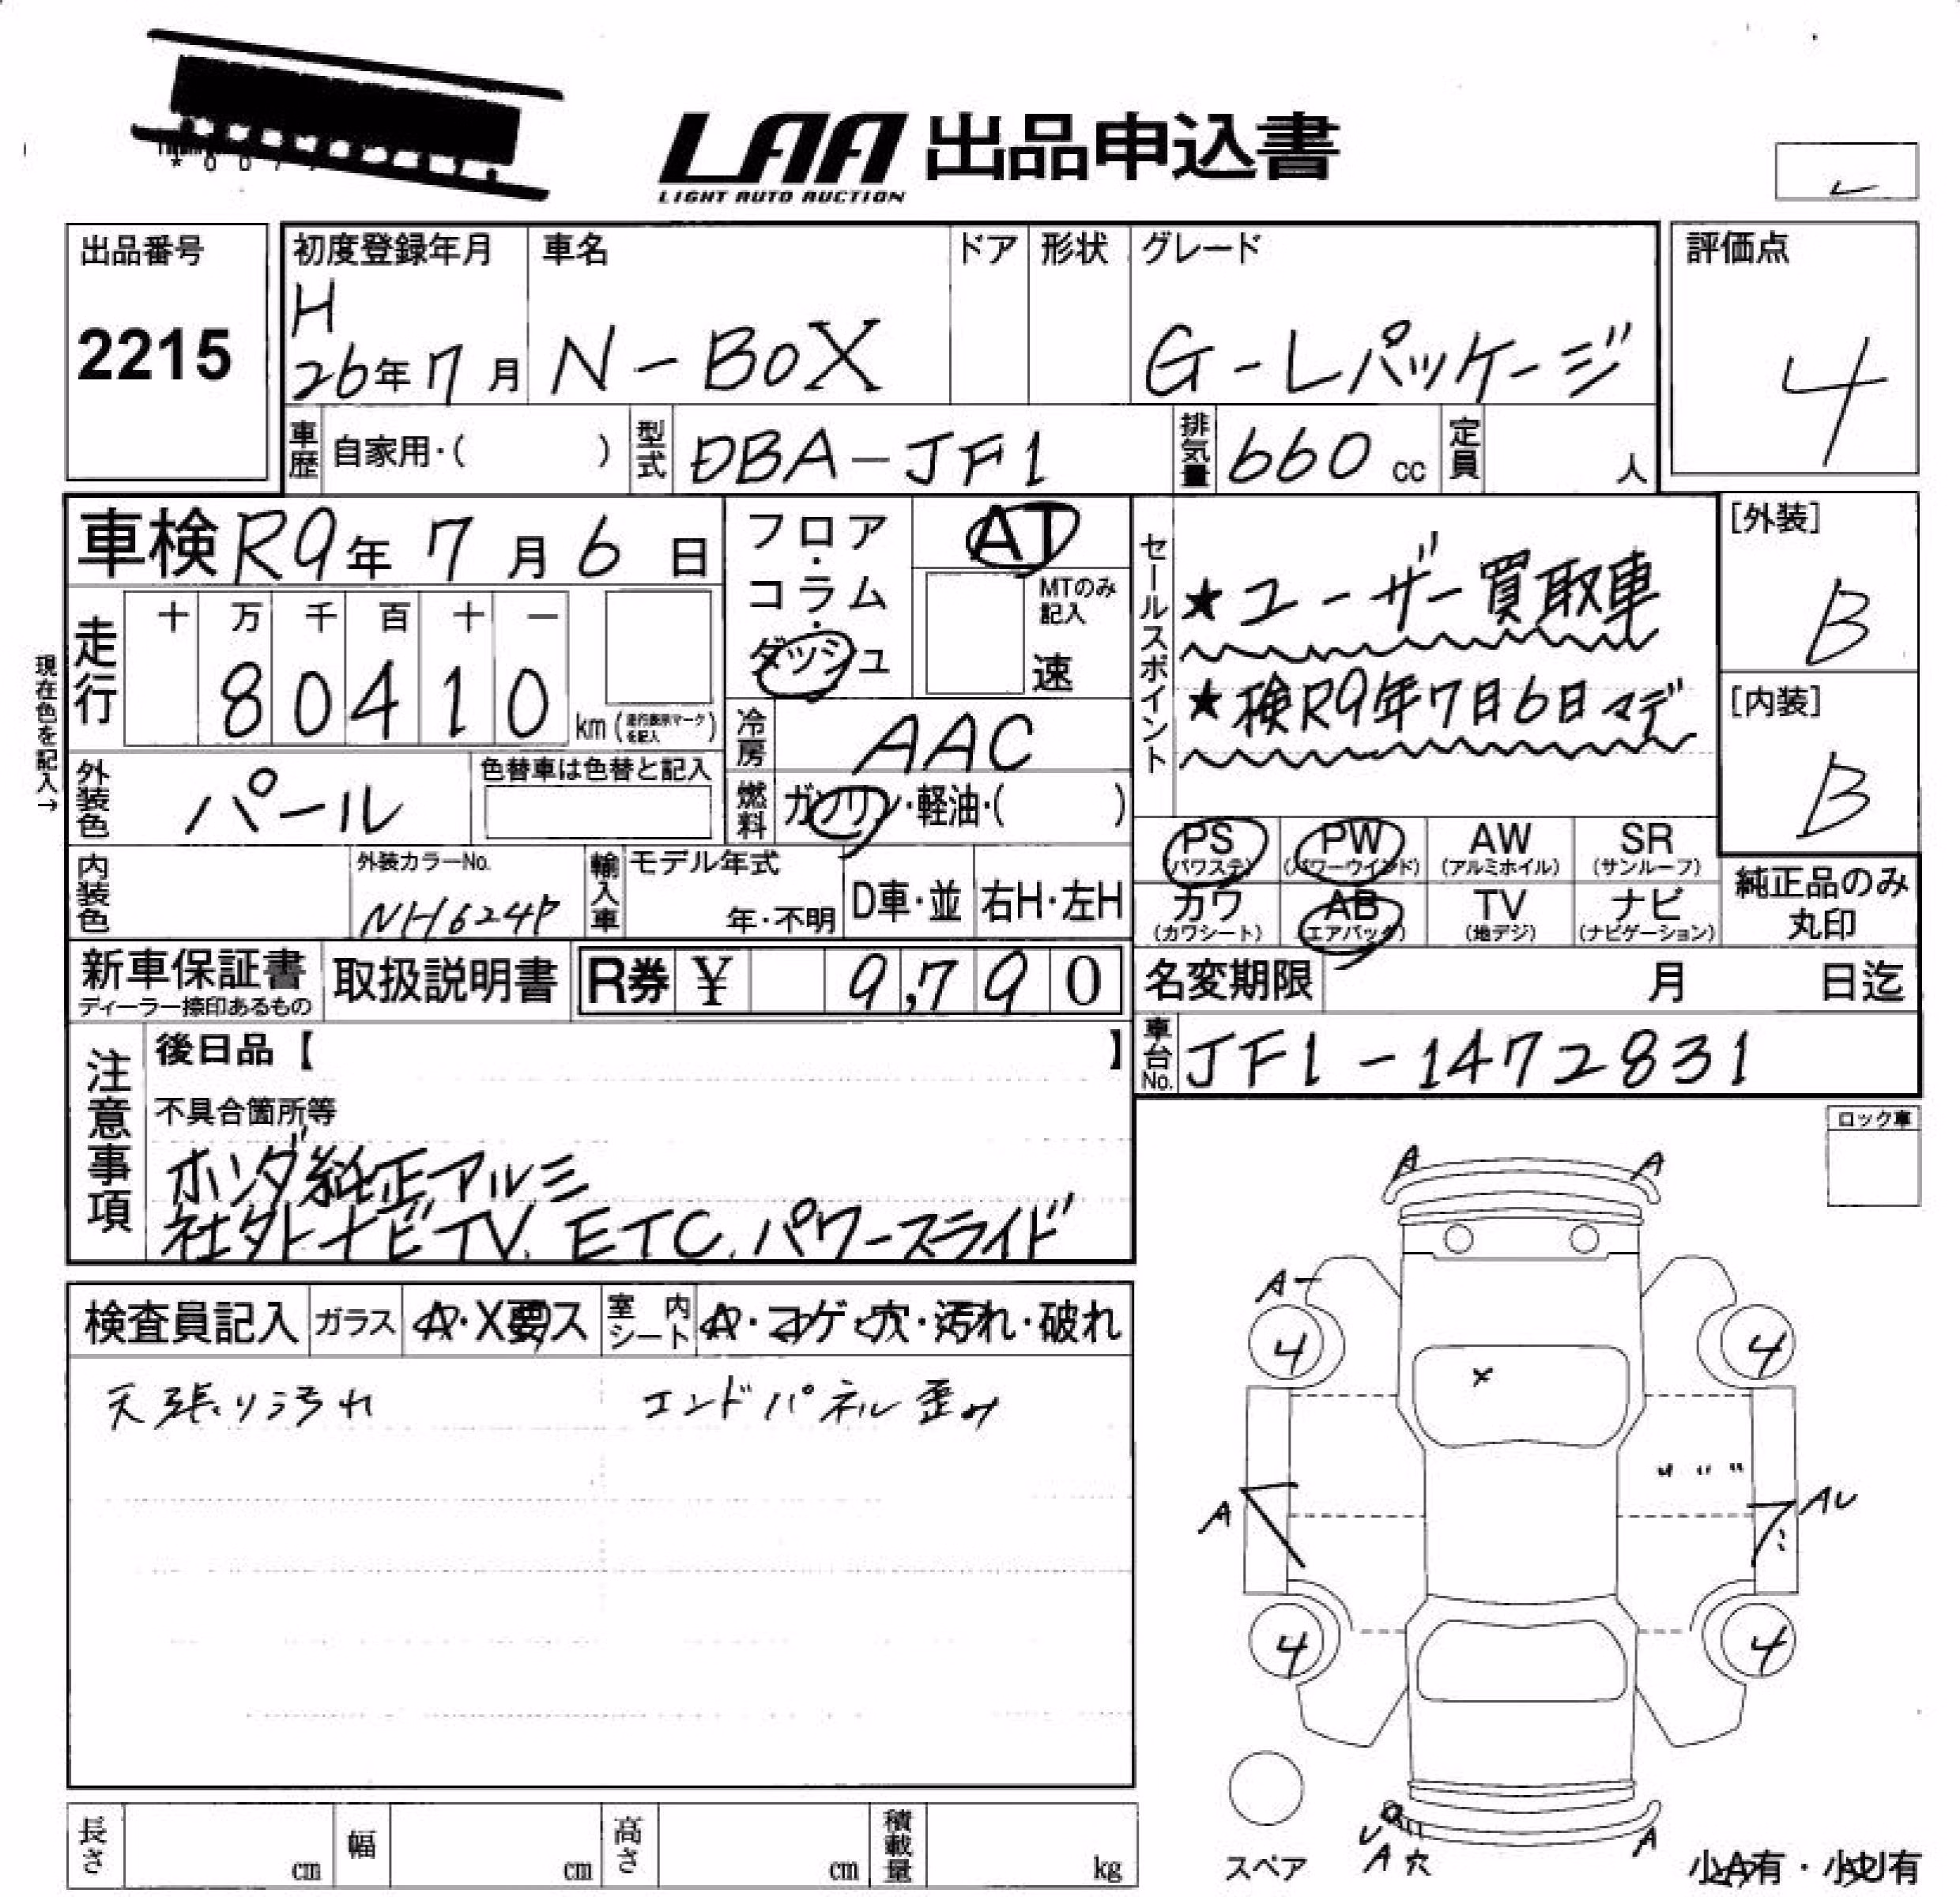 LAA 出品申込書
LIGHT AUTO AUCTION
出品番号
2215
初度登録年月
H
26年7月
車名
N-BOX
ドア
形状
グレード
G-Lパッケージ
評価点
4
車歴 自家用・( )
型式 DBA-JF1
排気量 660 cc
定員 人
車検 R9年 7月 6日
フロア・コラム・ダッシュ
AT
MTのみ記入
速
セールスポイント
★ユーザー買取車
★検R9年7月6日マデ
[外装]
B
[内装]
B
現在色を記入→
走行
十 万 千 百 十 一
80410
km (走行表示マークを記入)
冷房 AAC
外装色 パール
色替車は色替と記入
燃料 ガソリン・軽油・( )
PS (パワステ)
PW (パワーウインド)
AW (アルミホイル)
SR (サンルーフ)
カワ (カワシート)
AB (エアバック)
TV (地デジ)
ナビ (ナビゲーション)
純正品のみ丸印
内装色
外装カラーNo.
NH624P
輸入車
モデル年式
年・不明
D車・並
右H・左H
新車保証書
ディーラー捺印あるもの
取扱説明書
R券 ¥ 9,790
名変期限 月 日迄
車台No. JF1-1472831
注意事項
後日品【 】
不具合箇所等
ホンダ純正アルミ
社外ナビTV. ETC. パワースライド
ロック車
検査員記入
ガラス
A・X要ス
室内シート
A・コゲ・穴・汚れ・破れ
天張り汚れ
エンドパネル歪み
A
A
A
4
4
X
A
AU
4
4
U
A 穴
A
スペア
小A有・小U有
長さ cm
幅 cm
高さ cm
積載量 kg